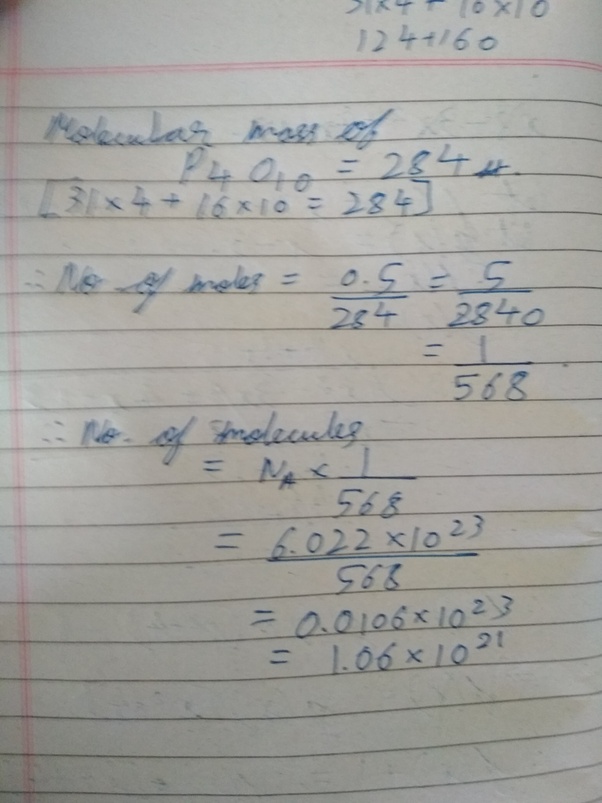 31×4 + 16×10
124+160
Molecular mass of
P4 O10 = 284 u.
[31×4 + 16×10 = 284]
∴ No of moles = 0.5/284 = 5/2840
= 1/568
∴ No. of molecules
= NA × 1/568
= 6.022×10²³/568
= 0.0106×10²³
= 1.06×10²¹